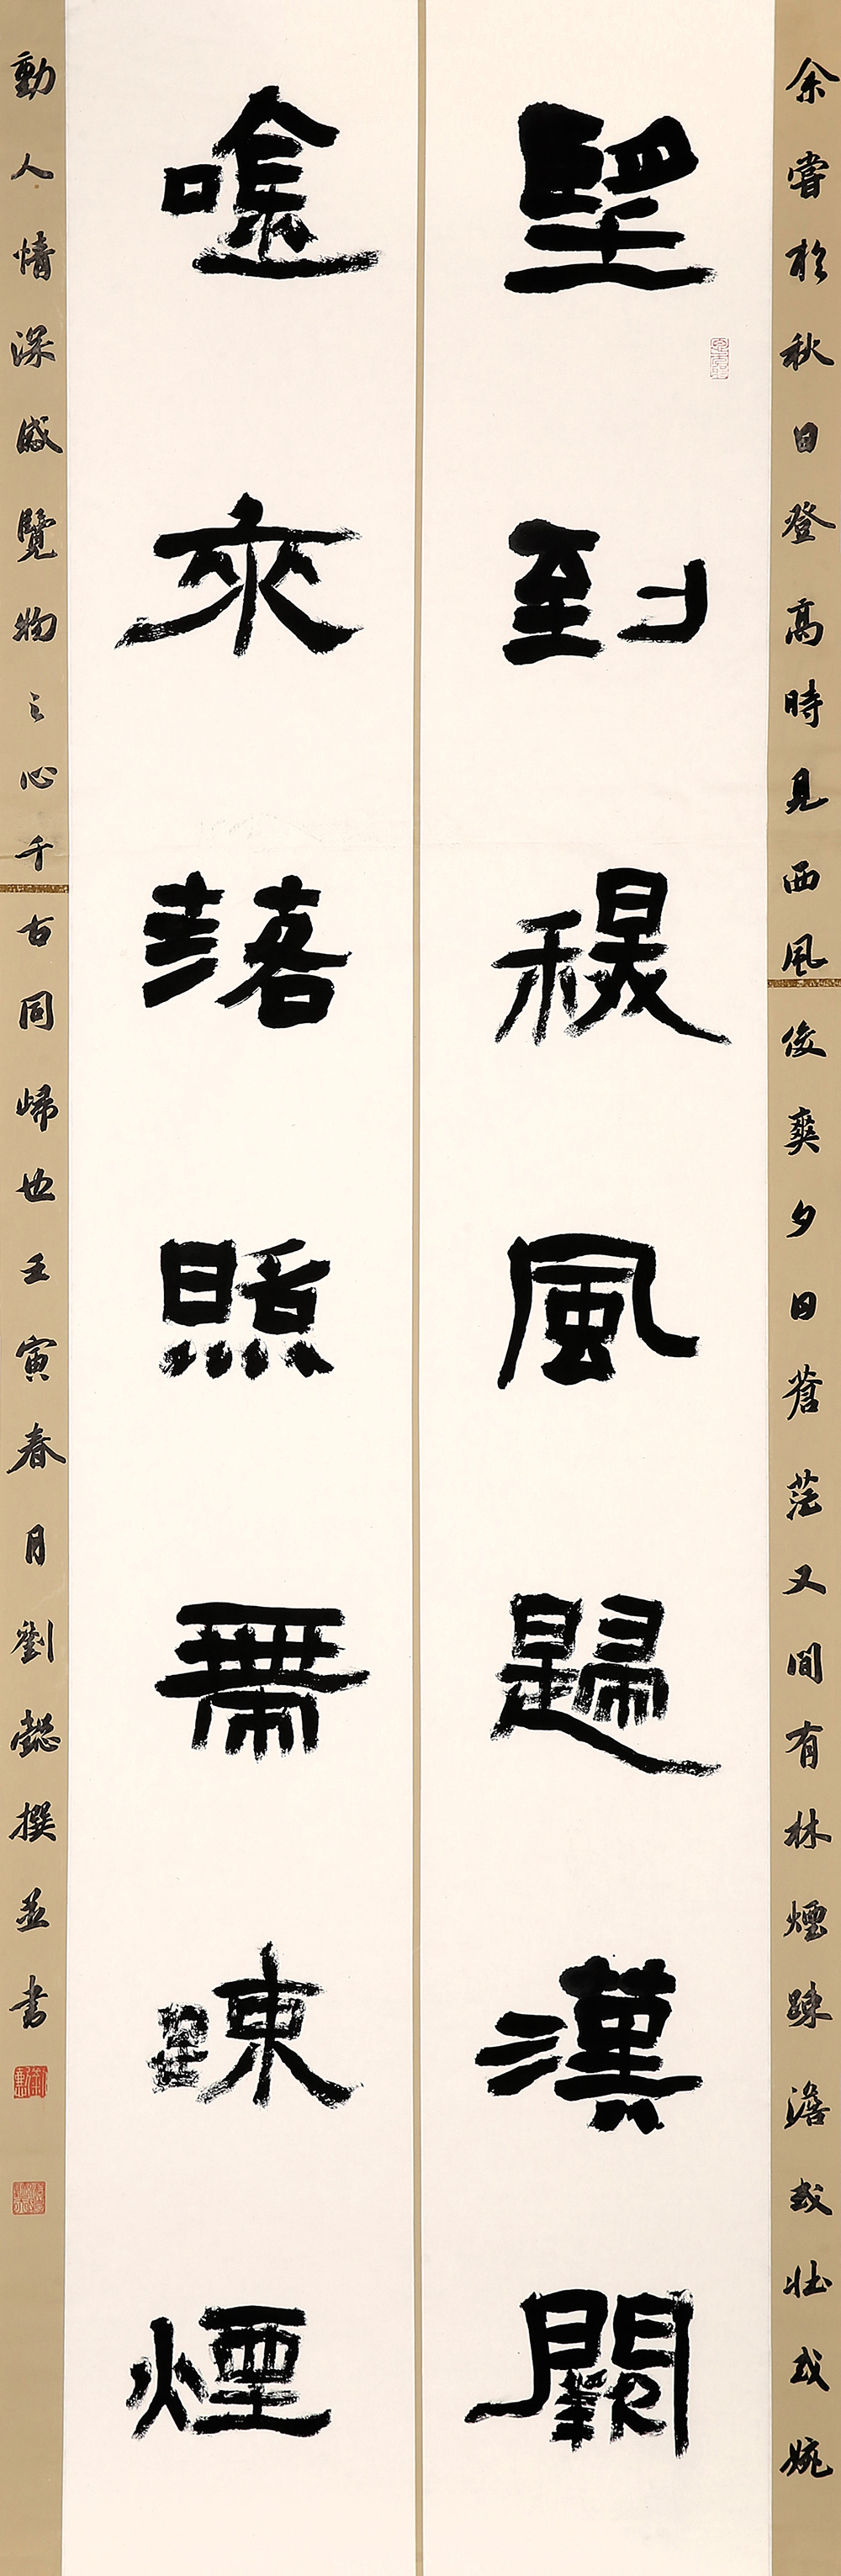 余嘗於秋日登高時見西風俊爽夕日蒼茫又間有林煙疎澹或壯或婉
望到秋風歸漢闕
唫來落照帶疎煙
動人情深感覽物之心千古同歸也壬寅春月劉懿撰並書